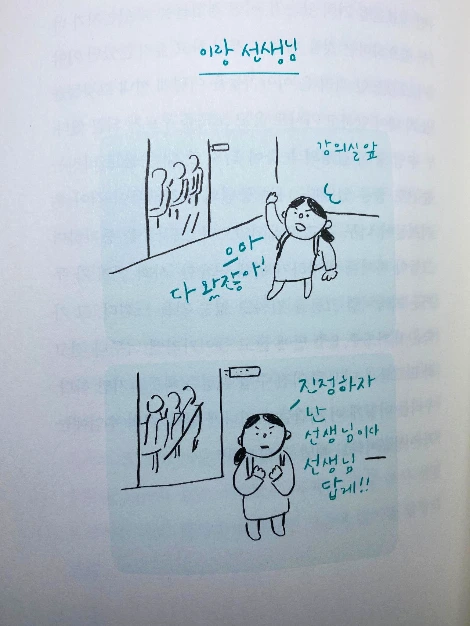 이랑 선생님
강의실 앞
으아
다 왔잖아!
진정하자
난
선생님이다
선생님 —
답게!!